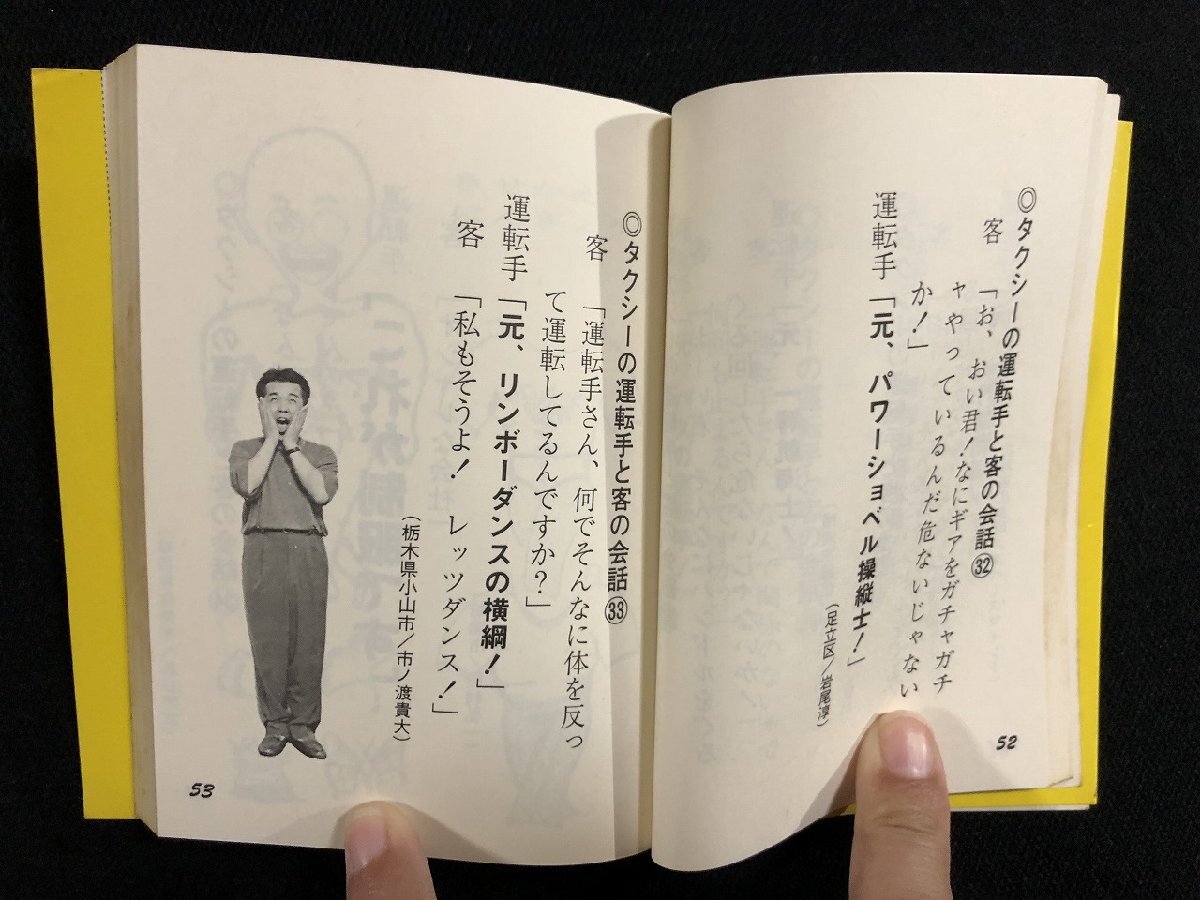 ◎タクシーの運転手と客の会話㉜
客「お、おい君！なにギアをガチャガチ
ャやっているんだ危ないじゃない
か！」
運転手「元、パワーショベル操縦士！」
（足立区／岩尾淳）
52
◎タクシーの運転手と客の会話㉝
客「運転手さん、何でそんなに体を反っ
て運転してるんですか？」
運転手「元、リンボーダンスの横綱！」
客「私もそうよ！　レッツダンス！」
（栃木県小山市／市ノ渡貴大）
53